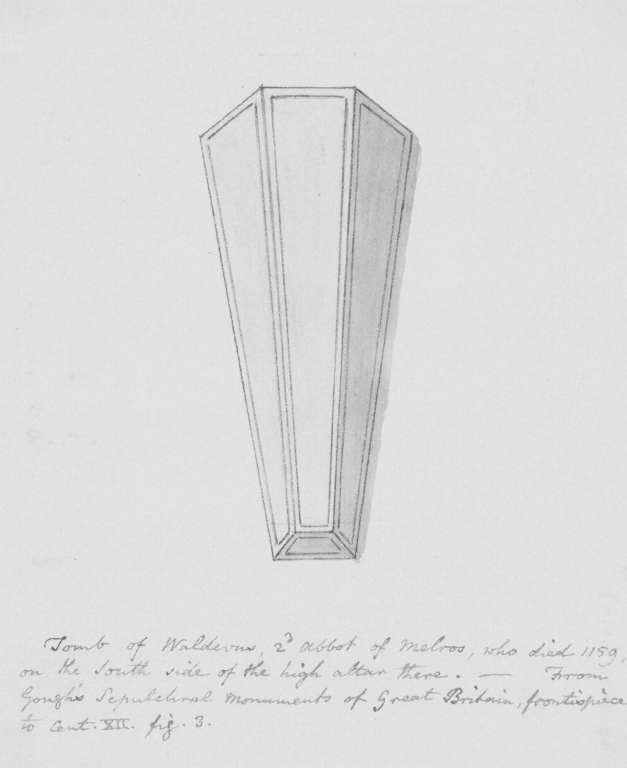 Tomb of Waldevus, 2d abbot of Melros, who died 1159,
on the South side of the high altar there. — From
Gough's Sepulchral Monuments of Great Britain, frontispiece
to Cent. XII. fig. 3.